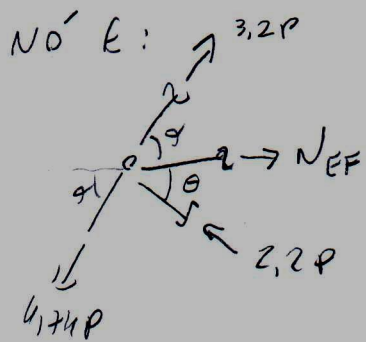 NÓ E:
3,2P
α
N_EF
θ
α
2,2P
4,74P